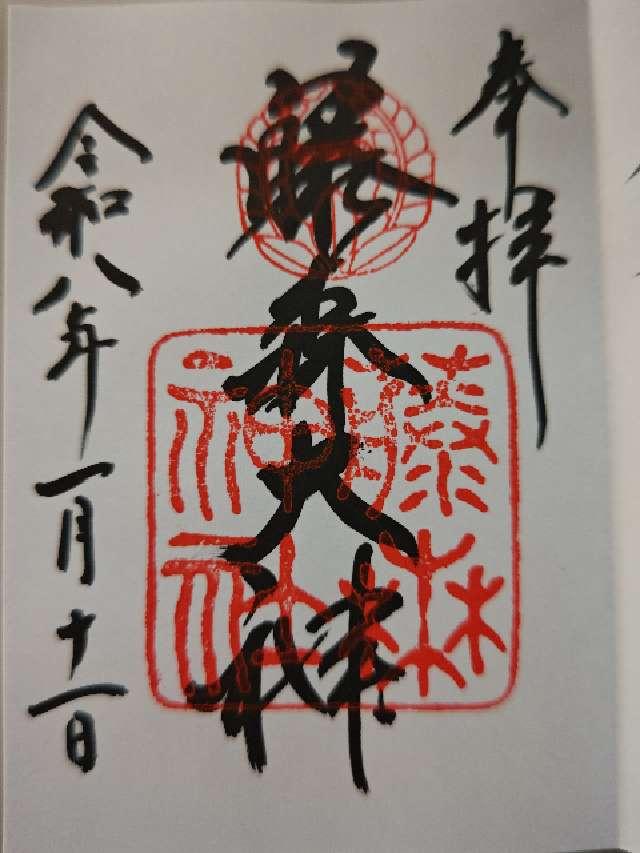 奉拝
藤森大神
藤森
神社
令和八年一月十一日